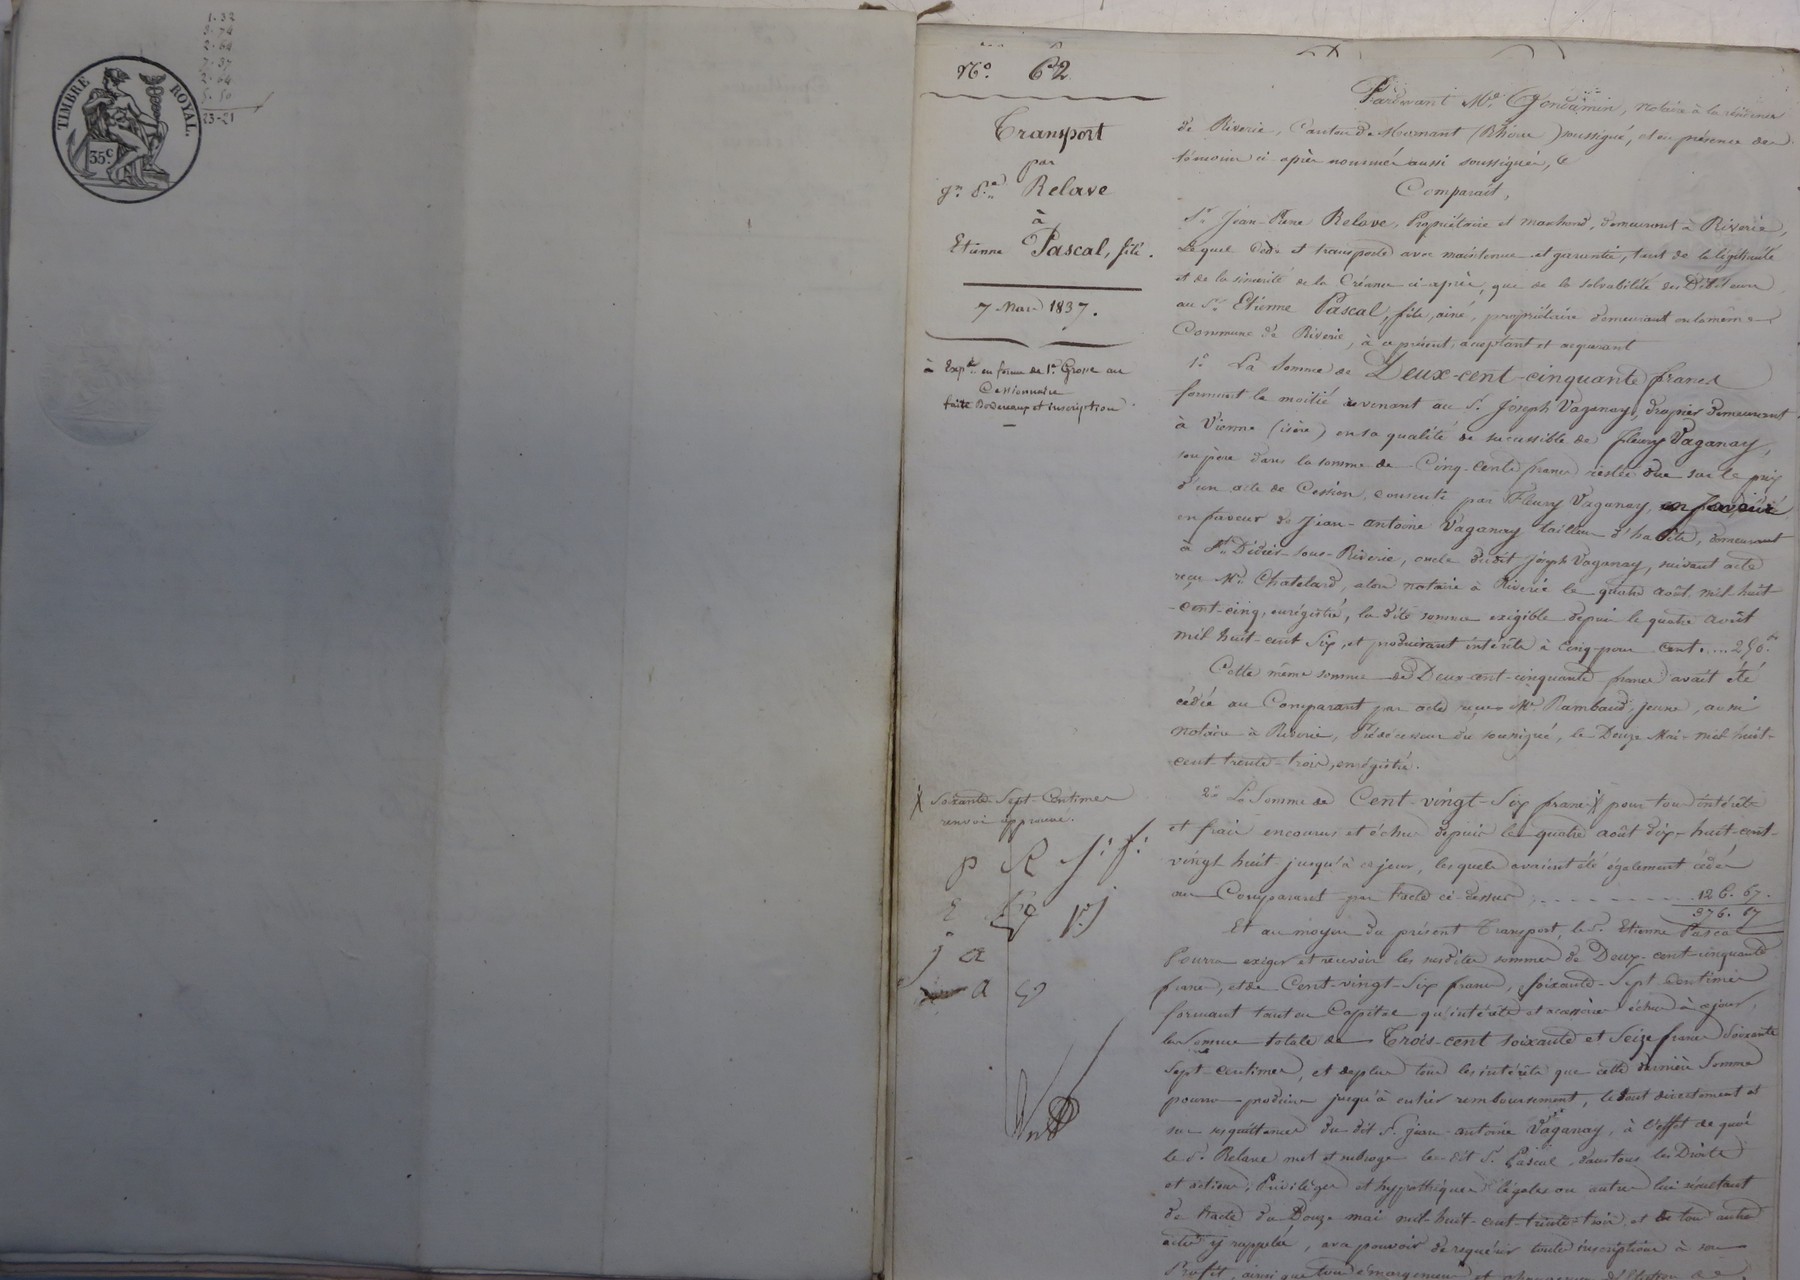 1.32
2.64
5.50
23-21
TIMBRE ROYAL.
35c
No. 62
Transport
par
Jn. P.re Relave
à
Etienne Pascal, fils.
7 Mars 1837.
à Expé. en forme de 1e Grosse au
Cessionnaire
faite Bordereaux et inscription
Pardevant Me. Gondamin, notaire à la résidence
de Riverie, Canton de Mornant (Rhône) soussigné, et en présence des
témoins ci après nommés aussi soussignés,
Comparait,
Sr. Jean-Pierre Relave, Propriétaire et marchand, demeurant à Riverie,
Lequel cède et transporte avec maintenue et garantie, tant de la légitimité
et de la sincérité de la Créance ci-après, que de la solvabilité des Débiteurs
au Sr. Etienne Pascal, fils, ainé, propriétaire demeurant en la même
Commune de Riverie, à ce présent, acceptant et requérant
1o. La Somme de Deux-cent-cinquante francs
formant la moitié revenant au S. Joseph Vaganay, drapier demeurant
à Vienne (isère) en sa qualité de successible de Fleury Vaganay,
son père dans la somme de Cinq-cents francs restée due sur le prix
d'un acte de Cession, consenti par Fleury Vaganay, en faveur
en faveur de Jean-antoine Vaganay tailleur d'habits, demeurant
à St. Didier-sous-Riverie, oncle dudit Joseph Vaganay, suivant acte
reçu Me. Chatelard, alors notaire à Riverie le quatre août mil huit
-cent-cinq, enregistré, la dite somme exigible depuis le quatre Août
mil huit-cent Six, et produisant intérêts à cinq pour cent.....250.fs
Cette même somme de Deux-cent-cinquante francs avait été
cédée au Comparant par acte reçu Me. Rambaud, jeune, aussi
notaire à Riverie, Prédécesseur du soussigné, le Douze Mai mil huit-
cent-trente-trois, enregistré.
2o. La Somme de Cent-vingt-Six francs X pour tous intérêts
et frais encourus et échus depuis le quatre août dix-huit-cent-
vingt huit jusqu'à ce jour, lesquels avaient été également cédés
au Comparant par l'acte ci-dessus, . . . . . . . . 126. 67.
376. 67
X Soixante-Sept-Centimes
renvoi approuvé.
P R
Et au moyen du présent Transport, le S. Etienne Pascal
Pourra exiger et recevoir les susdites sommes de Deux-cent-cinquante
francs, et de Cent-vingt-Six francs, Soixante-Sept Centimes
formant tant en Capital qu'intérêts et accessoires échus à ce jour,
la Somme totale de Trois-cent soixante et Seize francs Soixante
Sept-centimes, et de plus tous les intérêts que cette dernière Somme
pourra produire jusqu'à entier remboursement, le tout directement et
sur ses quittances du dit S. Jean-antoine Vaganay, à l'effet de quoi
le S. Relave met et subroge le dit S. Pascal, dans tous les Droits
et actions, Privilèges et hypothèques légales ou autres lui résultant
de l'acte du Douze mai mil-huit-cent-trente-trois, et de tous autres
actes y rappelés, avec pouvoir de requérir toutes inscriptions à son
Profit, ainsi que tous émargemens et